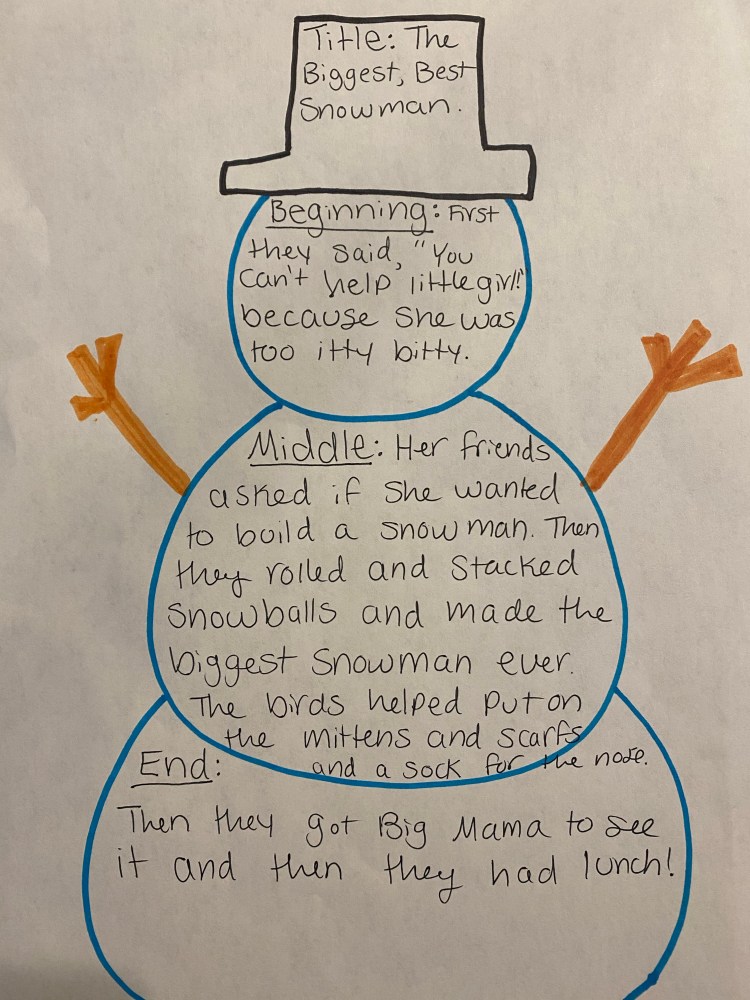 Title: The
Biggest, Best
Snowman.
Beginning: First
they said, "You
can't help little girl!"
because she was
too itty bitty.
Middle: Her friends
asked if she wanted
to build a snowman. Then
they rolled and stacked
snowballs and made the
biggest snowman ever.
The birds helped put on
the mittens and scarfs
and a sock for the nose.
End:
Then they got Big Mama to see
it and then they had lunch!